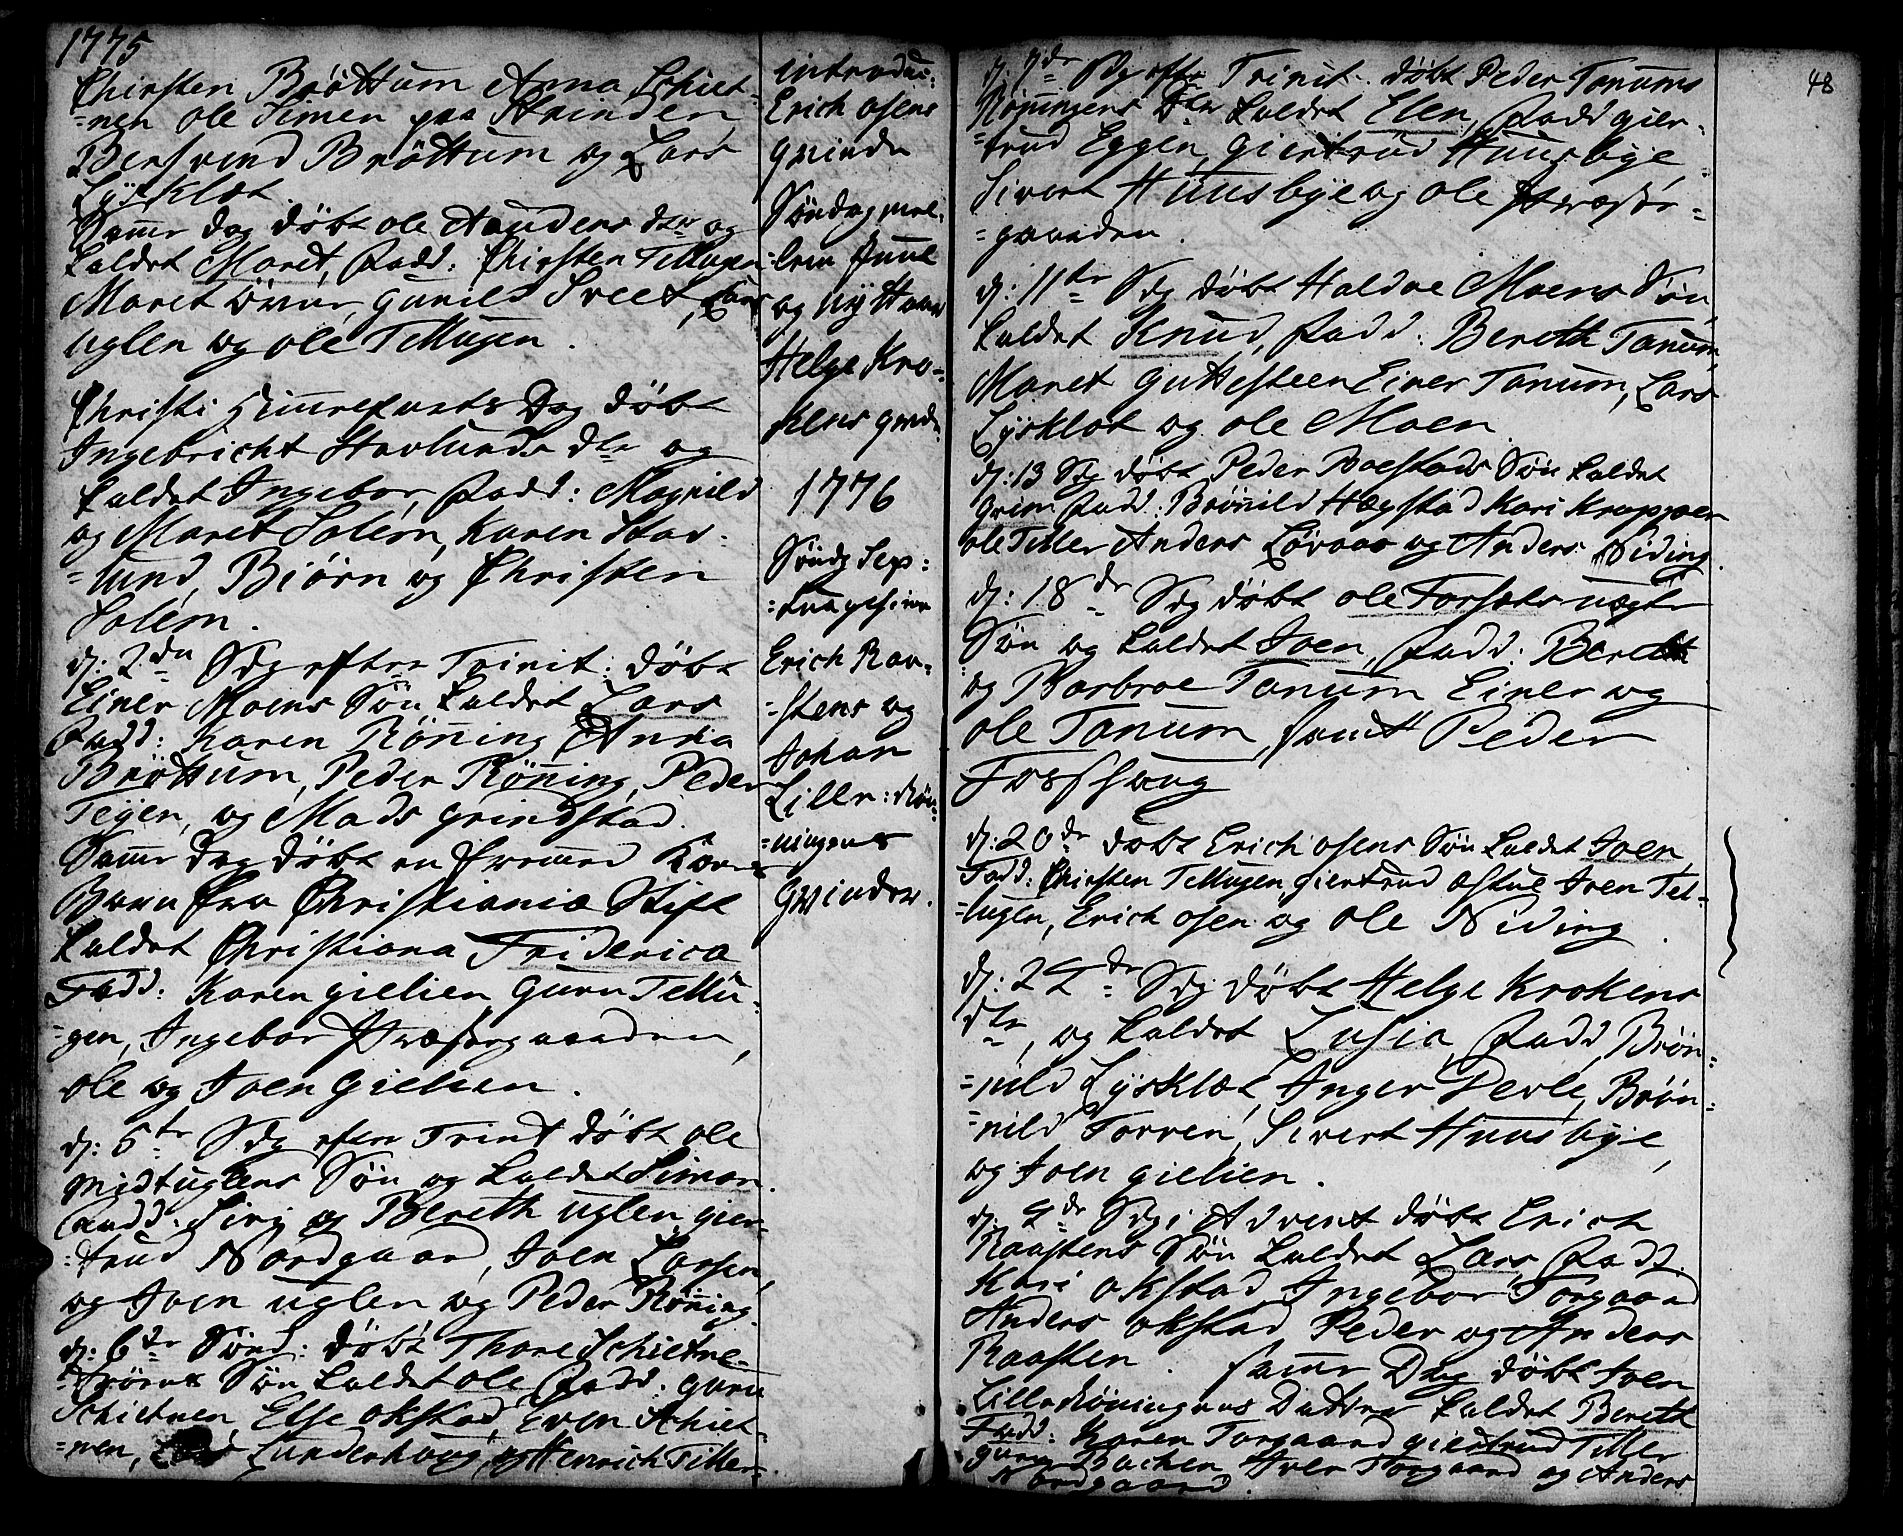 1775
Chirsten Bröttum Anna Schiet-
=nen ole Simen paa Strinden
Bersvend Bröttum og Lars
Lÿsklæt.
Samme dag döbt ole Aaudens dtr og
kaldet Maret, Fadd: Chirsten Tellugen
Maret Gunild Sveet, Lars
uglen og ole Tellugen.
Christi Himmelfarts Dag döbt
Ingebricht Stavlunds dtr og
kaldet Ingebor, Fadd: Magnild
og Maret Solem, Karen Stav-
=lund, Biörn og Christen
Solem.
d: 2den Sdg efter Trinit: döbt
Einer Moens Sön kaldet Lars
Fadd: Karen Röning Anna
Bröttum, Peder Röning, Peder
Teÿen, og Mads grindstad.
Samme dag döbt en fremmed
Barn fra Christiania Stift
kaldet Christiana Friderica
Fadd: Karen gielien guru Tellu-
=gen, Ingebor Præstegaarden,
ole og Joen gielien.
d: 5te Sdg efter Trinit döbt ole
Midtuglens Sön og kaldet Simon.
Fadd: Siri og Bereth uglen, gier-
=trud Nordgaard, Joen Larsen,
og Joen uglen og Peder Röning.
d: 6te Sönd: döbt Thore Schietne-
Sön kaldet ole Fadd: guru
Schietnen, Else okstad, Even Schiet-
=nen, Lunderhaug, og Henrich Tiller.
introduc:
Erich osens
qvinde
Söndag mel-
=lem Juul
og nÿ Haar
Helge Kro-
kens qvinde
1776
Söndg Sep-
=tuagesima
Erich Raa-
=stens og
Johan
Lille: Rön-
=ningens
Qvinder.
48
Sdg efter Trinit: döbt Peder Tanums
Röningens dtr kaldet Elen, Fadd gier-
=trud Eggen, giertrud Huusbÿe,
Sivert Huusbÿe og ole Præste-
=gaarden.
d: 11te Sdg döbt Haldoe Moens Sön
kaldet Knud, Fadd: Bereth Tanum,
Maret Guttesteen Einer Tanum, Lars
Lÿsklæt og ole Moen.
d: 13 Sdg döbt Peder Baestads Sön kaldet
grim Fadd: Brönild Hægstad Kari Kroppaen
ole Tiller Anders Lövaas og Anders Niding.
d: 18de Sdg döbt ole Forsæts uægte
Sön og kaldet Joen, Fadd: Bereth
og Barbroe Tanum Einer og
ole Tanum, samt Peder
Fosshaug
d: 20de döbt Erich osens Sön kaldet Joen,
Fadd: Chirsten Tellugen, giertrud Joen Tel-
=lugen, Erich osen og ole Niding.
d: 24de Sdg döbt Helge Krokens
dtr, og kaldet Lusia, Fadd, Brön-
=nild Lÿsklæt, Anger Devle, Brön-
=nild Torven, Sivert Huusbÿe,
og Joen gielien.
d: 4de Sdg i Advent döbt Erich
Raastens Sön kaldet Lars, Fadd.
Kari okstad, Ingebor Torgaard
Anders okstad, Peder og Anders
Raasten. Samme Dag döbt Joen
Lille Röningens Datter kaldet Bereth
Fadd: Karen Torgaard giertrud Tiller
guru Bachen, Iver Torgaard og Anders
Nordgaard.